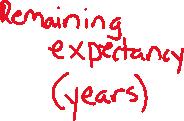 Remaining
expectancy
(years)